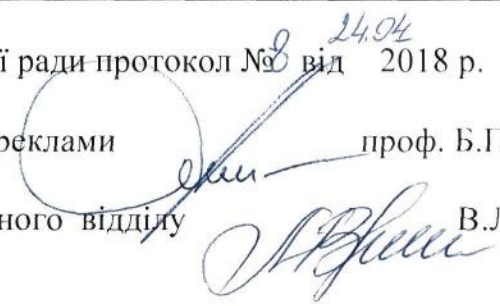 ї ради протокол № 8 від 24.04 2018 р.
реклами проф. Б.П
ного відділу В.Л